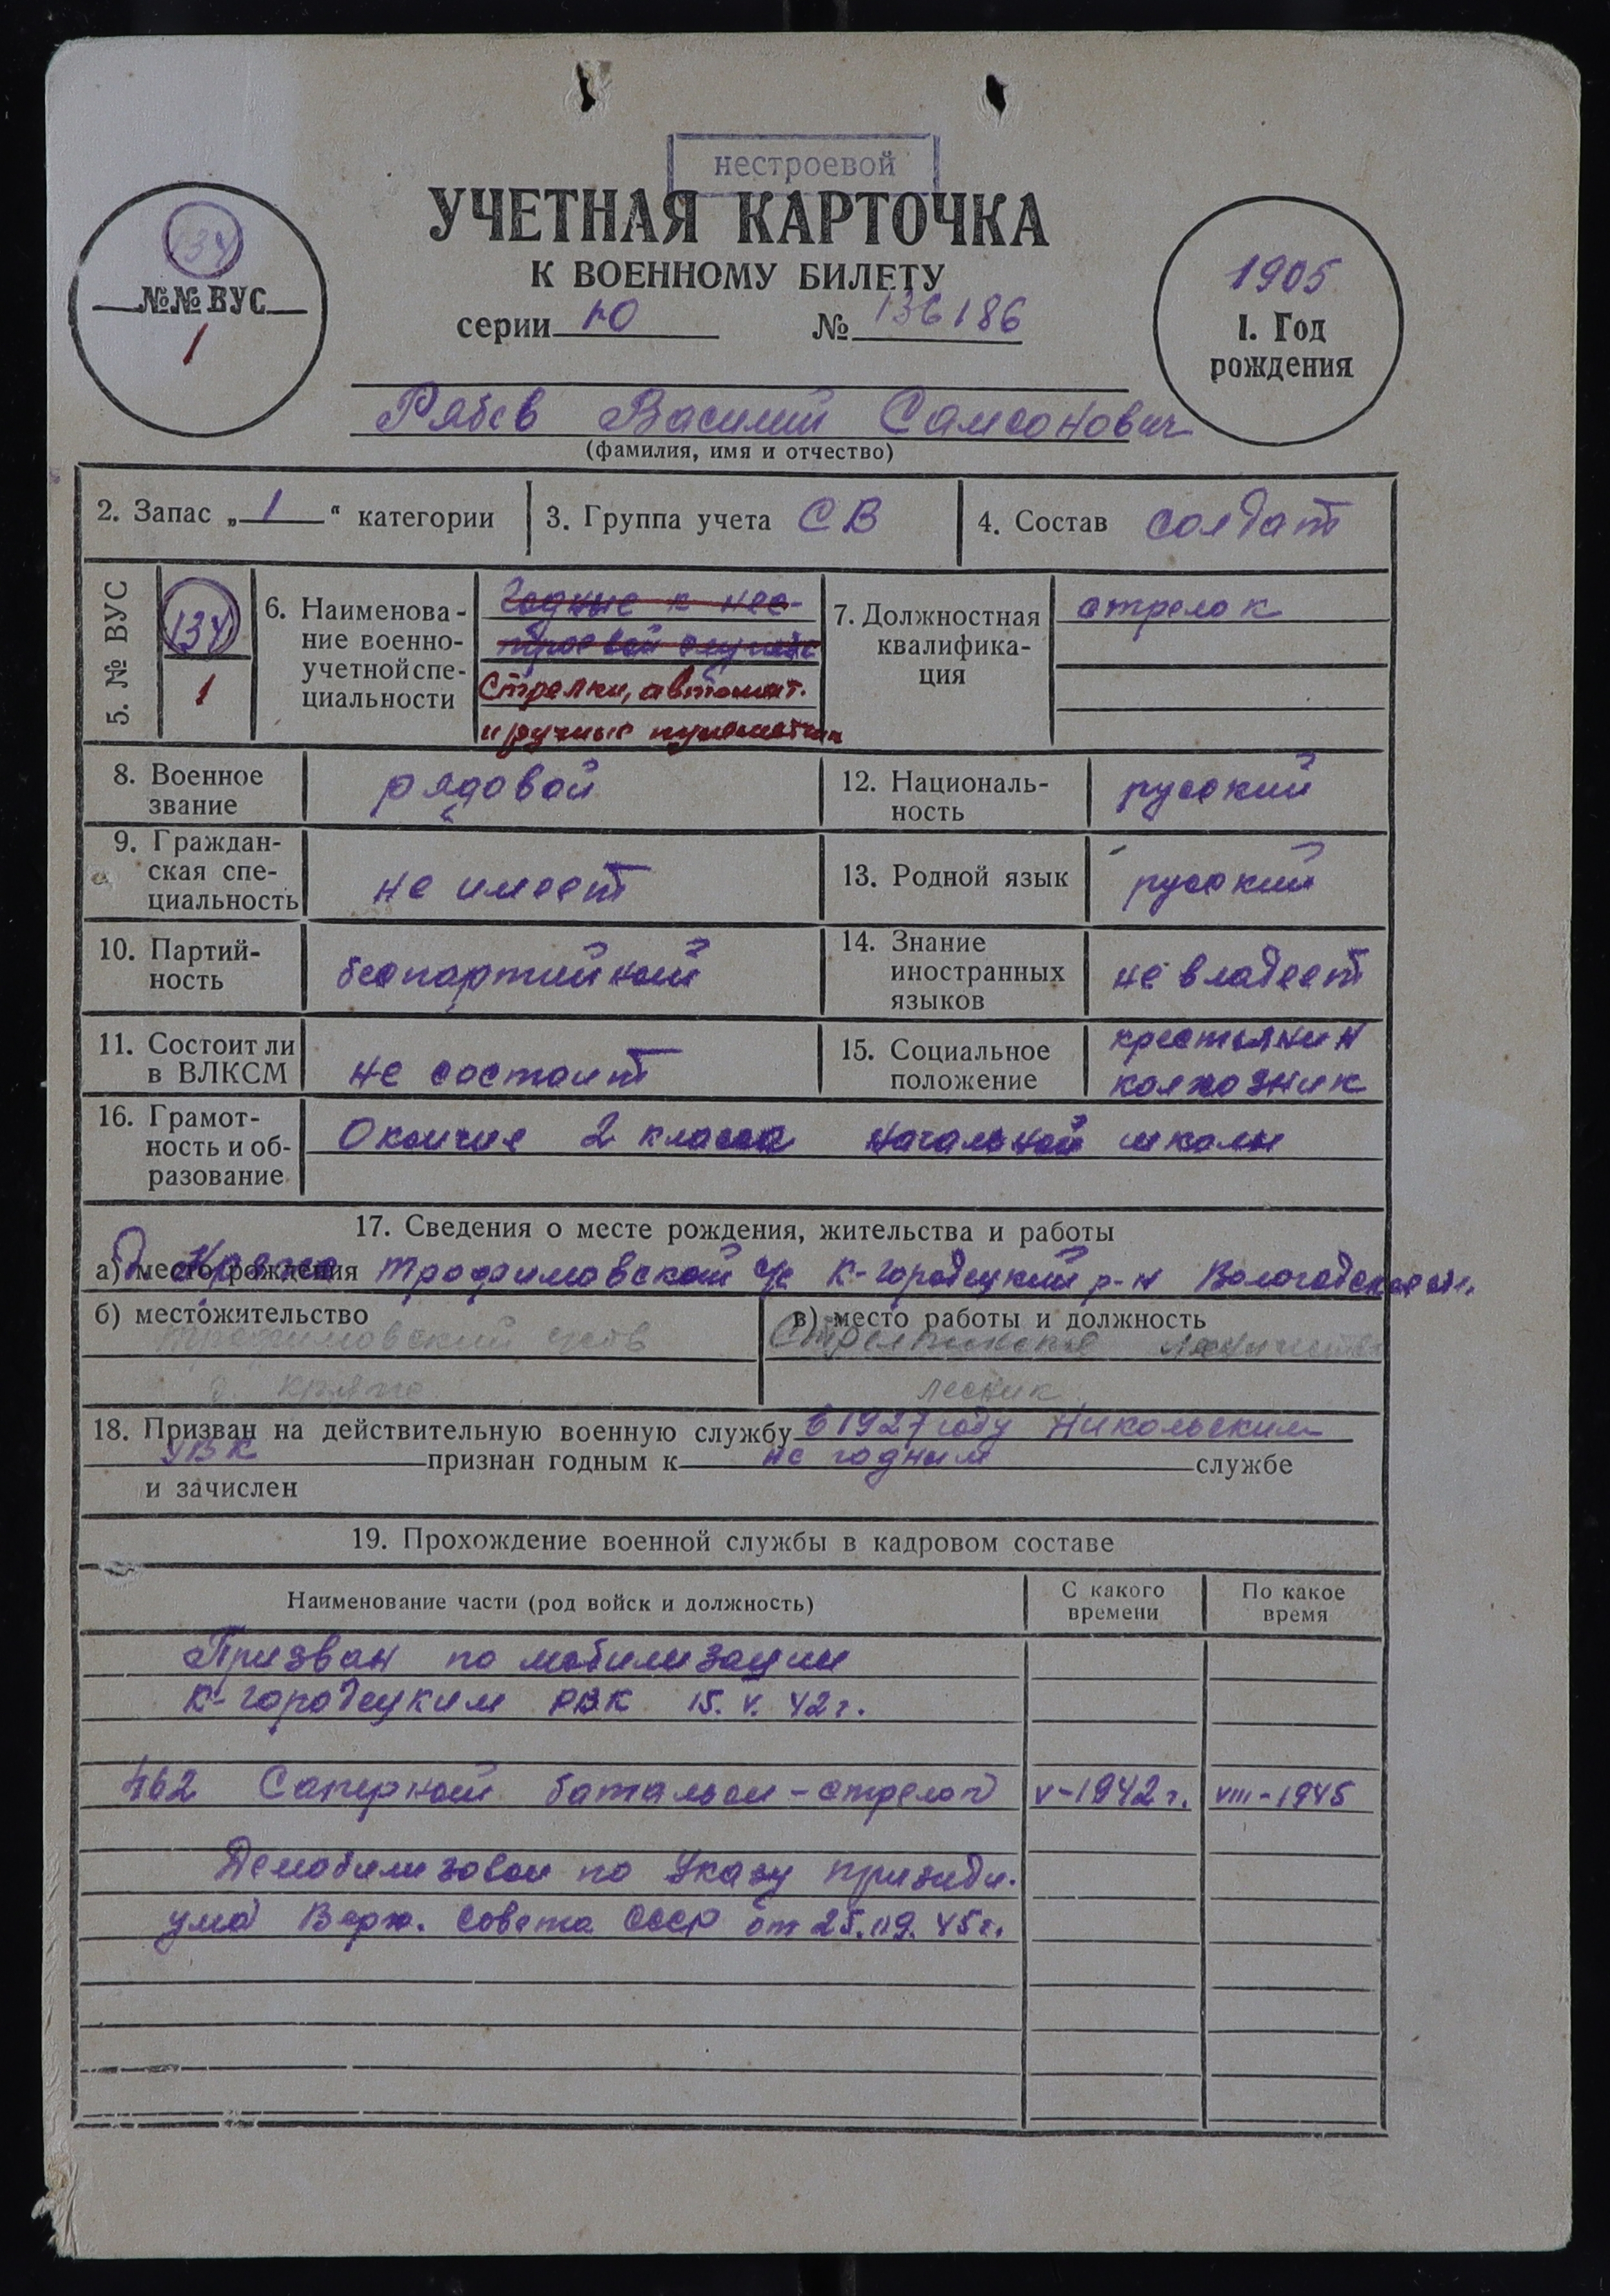 нестроевой
УЧЕТНАЯ КАРТОЧКА
К ВОЕННОМУ БИЛЕТУ
серии № 136186
134
№№ ВУС
1
1905
1. Год
рождения
Рябев Василий Самсонович
(фамилия, имя и отчество)
2. Запас „ 1 “ категории
3. Группа учета СВ
4. Состав солдат
5. № ВУС
134
1
6. Наименова-
ние военно-
учетной спе-
циальности
Годные к нес-
троевой службе
Стрелки, автомат.
и ручные пулеметчики
7. Должностная
квалифика-
ция
стрелок
8. Военное
звание
рядовой
12. Националь-
ность
русский
9. Граждан-
ская спе-
циальность
не имеет
13. Родной язык
русский
10. Партий-
ность
беспартийный
14. Знание
иностранных
языков
не владеет
11. Состоит ли
в ВЛКСМ
не состоит
15. Социальное
положение
крестьянин
колхозник
16. Грамот-
ность и об-
разование
Окончил 2 класса начальной школы
17. Сведения о месте рождения, жительства и работы
а) место рождения Трофимовской с/с К-Городецкий р-н Вологодской обл.
б) местожительство
Трофимовский
д.
в) место работы и должность
лесничество
лесник
18. Призван на действительную военную службу в 1927 году Никольским
УВК признан годным к не годным службе
и зачислен
19. Прохождение военной службы в кадровом составе
Наименование части (род войск и должность)
С какого
времени
По какое
время
Призван по мобилизации
К-Городецким РВК 15.V.42г.
462 Саперный батальон - стрелок V-1942г. VIII-1945
Демобилизован по Указу президи-
ума Верх. Совета СССР от 25.09.45г.